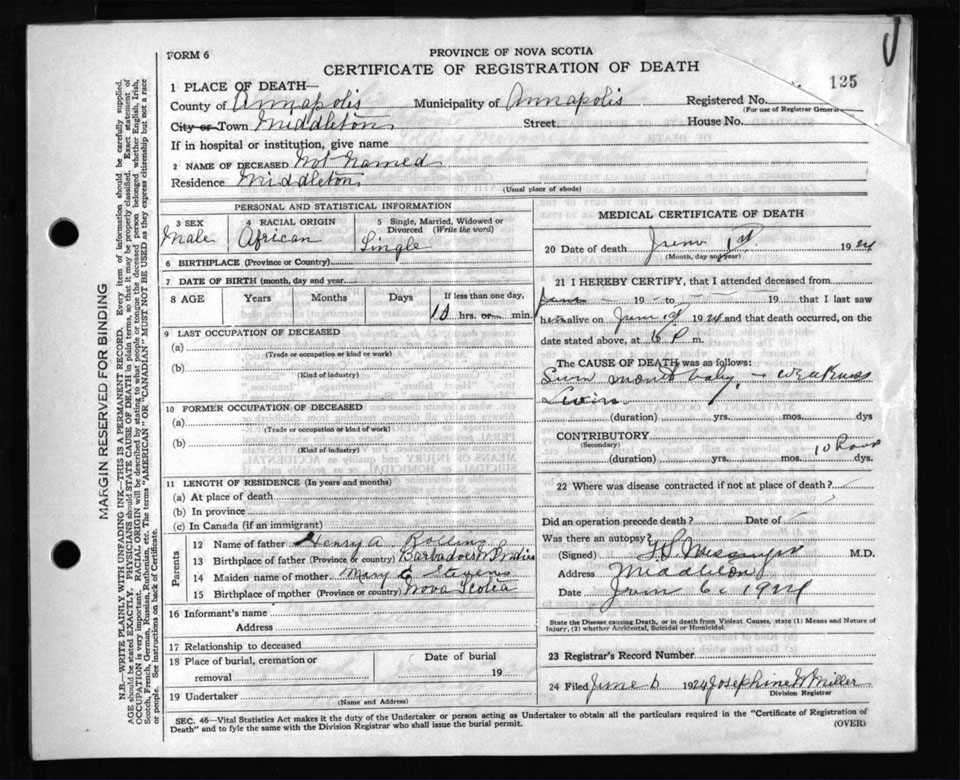 FORM 6
PROVINCE OF NOVA SCOTIA
CERTIFICATE OF REGISTRATION OF DEATH
125
1 PLACE OF DEATH—
County of Annapolis Municipality of Annapolis Registered No.
(For use of Registrar General)
City or Town Middleton Street House No.
If in hospital or institution, give name
2 NAME OF DECEASED Not Named
Residence Middleton
(Usual place of abode)
PERSONAL AND STATISTICAL INFORMATION
3 SEX Male
4 RACIAL ORIGIN African
5 Single, Married, Widowed or Divorced (Write the word) Single
6 BIRTHPLACE (Province or Country)
7 DATE OF BIRTH (month, day and year)
8 AGE Years Months Days If less than one day, 10 hrs. or min.
9 LAST OCCUPATION OF DECEASED
(a)
(Trade or occupation or kind of work)
(b)
(Kind of industry)
10 FORMER OCCUPATION OF DECEASED
(a)
(Trade or occupation or kind of work)
(b)
(Kind of industry)
11 LENGTH OF RESIDENCE (In years and months)
(a) At place of death
(b) In province
(c) In Canada (if an immigrant)
Parents
12 Name of father Henry A Rollins
13 Birthplace of father (Province or country) Barbadoes W Indies
14 Maiden name of mother Mary E Stevens
15 Birthplace of mother (Province or country) Nova Scotia
16 Informant's name
Address
17 Relationship to deceased
18 Place of burial, cremation or removal Date of burial 19
19 Undertaker
(Name and Address)
MEDICAL CERTIFICATE OF DEATH
20 Date of death June 1st 1924
(Month, day and year)
21 I HEREBY CERTIFY, that I attended deceased from
June 19 to 19 that I last saw
him alive on June 1st 1924 and that death occurred, on the
date stated above, at 6 P m.
The CAUSE OF DEATH was as follows:
month baby, - weakness
(duration) yrs. mos. dys
CONTRIBUTORY
(Secondary)
10 hours
(duration) yrs. mos. dys.
22 Where was disease contracted if not at place of death?
Did an operation precede death? Date of
Was there an autopsy?
(Signed) Messenger M.D.
Address Middleton
Date June 6 1924
State the Disease causing Death, or in death from Violent Causes, state (1) Means and Nature of
Injury, (2) whether Accidental, Suicidal or Homicidal.
23 Registrar's Record Number
24 Filed June 6 1924 Josephine W Miller
Division Registrar
SEC. 46—Vital Statistics Act makes it the duty of the Undertaker or person acting as Undertaker to obtain all the particulars required in the "Certificate of Registration of
Death" and to fyle the same with the Division Registrar who shall issue the burial permit.
(OVER)
MARGIN RESERVED FOR BINDING
N.B.—WRITE PLAINLY WITH UNFADING INK—THIS IS A PERMANENT RECORD. Every item of information should be carefully supplied.
AGE should be stated EXACTLY. PHYSICIANS should STATE CAUSE OF DEATH in plain terms, so that it may be properly classified. Exact statement of
OCCUPATION is very important. RACIAL ORIGIN will be described by stating to what people or tongue the deceased person belonged whether English, Irish,
Scotch, French, German, Russian, Ruthenian, etc. The terms "AMERICAN" OR "CANADIAN" MUST NOT BE USED as they express citizenship but not a race
or people. See instructions on back of Certificate.